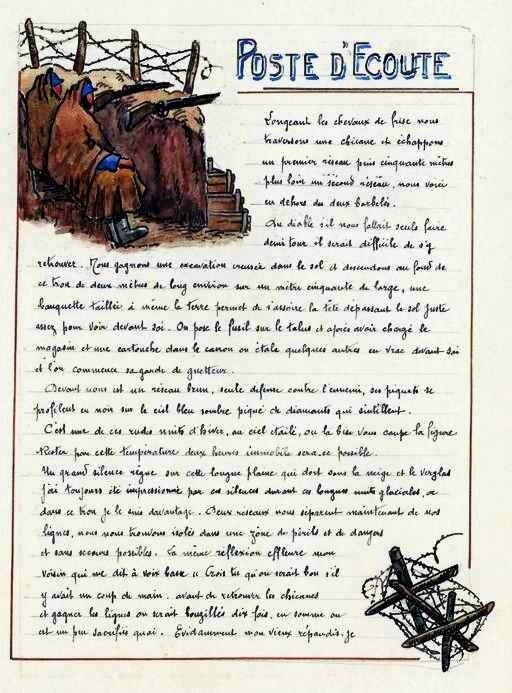 POSTE D'ECOUTE
Longeant les chevaux de frise nous
traversons une chicane et échappons
un premier réseau puis cinquante mètres
plus loin un second réseau, nous voici
en dehors du deux barbelés.
Du diable s'il nous fallait seuls faire
demi tour il serait difficile de s'y
retrouver. Nous gagnons une excavation creusée dans le sol et descendons au fond de
ce trou de deux mètres de long environ sur un mètre cinquante de large, une
banquette taillée à même la terre permet de s'assoire la tête dépassant le sol juste
assez pour voir devant soi. On pose le fusil sur le talus et après avoir chargé le
magasin et une cartouche dans le canon on étale quelques autres en vrac devant soi
et l'on commence sa garde de guetteur.
Devant nous est un réseau brun, seule défense contre l'ennemi, ses piquets se
profilent en noir sur le ciel bleu sombre piqué de diamants qui sintillent.
C'est une de ces rudes nuits d'hiver, au ciel étoilé, ou la bise vous coupe la figure
Rester par cette température deux heures immobile sera ce possible.
Un grand silence règne sur cette longue plaine qui dort sous la neige et le verglas
J'ai toujours été impressionné par ces silences durant ces longues nuits glaciales,
dans ce trou je le suis davantage. Deux réseaux nous séparent maintenant de nos
lignes, nous nous trouvons isolés dans une zône de périls et de dangers
et sans secours possibles. La même réflexion effleure mon
voisin qui me dit à voix basse « Crois tu qu'on serait bon s'il
y avait un coup de main. avant de retrouver les chicanes
et gagner les lignes on serait bouzillés dix fois, en somme on
est un peu sacrifiés quoi. Evidamment mon vieux répondis-je